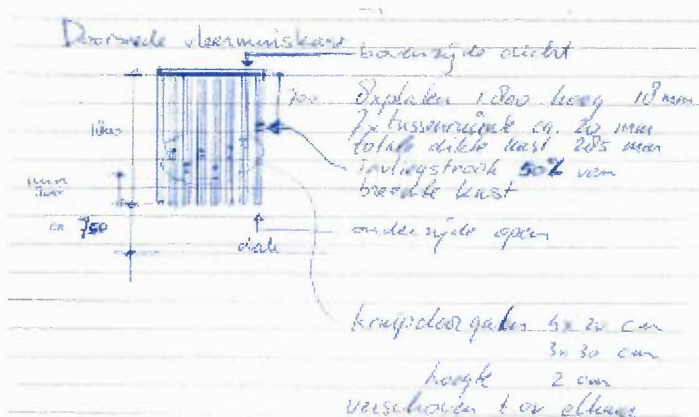 Doorsnede vleermuiskast
bovenzijde dicht
700
8x platen 1800 hoog 18 mm
7x tussenruimte ca. 20 mm
totale dikte kast 285 mm
1800
invliegstrook 50% van
breedte kast
ca 750
onderzijde open
kruipdoorgaten 4x 20 cm
3x 30 cm
hoogte 2 cm
verschoven t.o.v elkaar